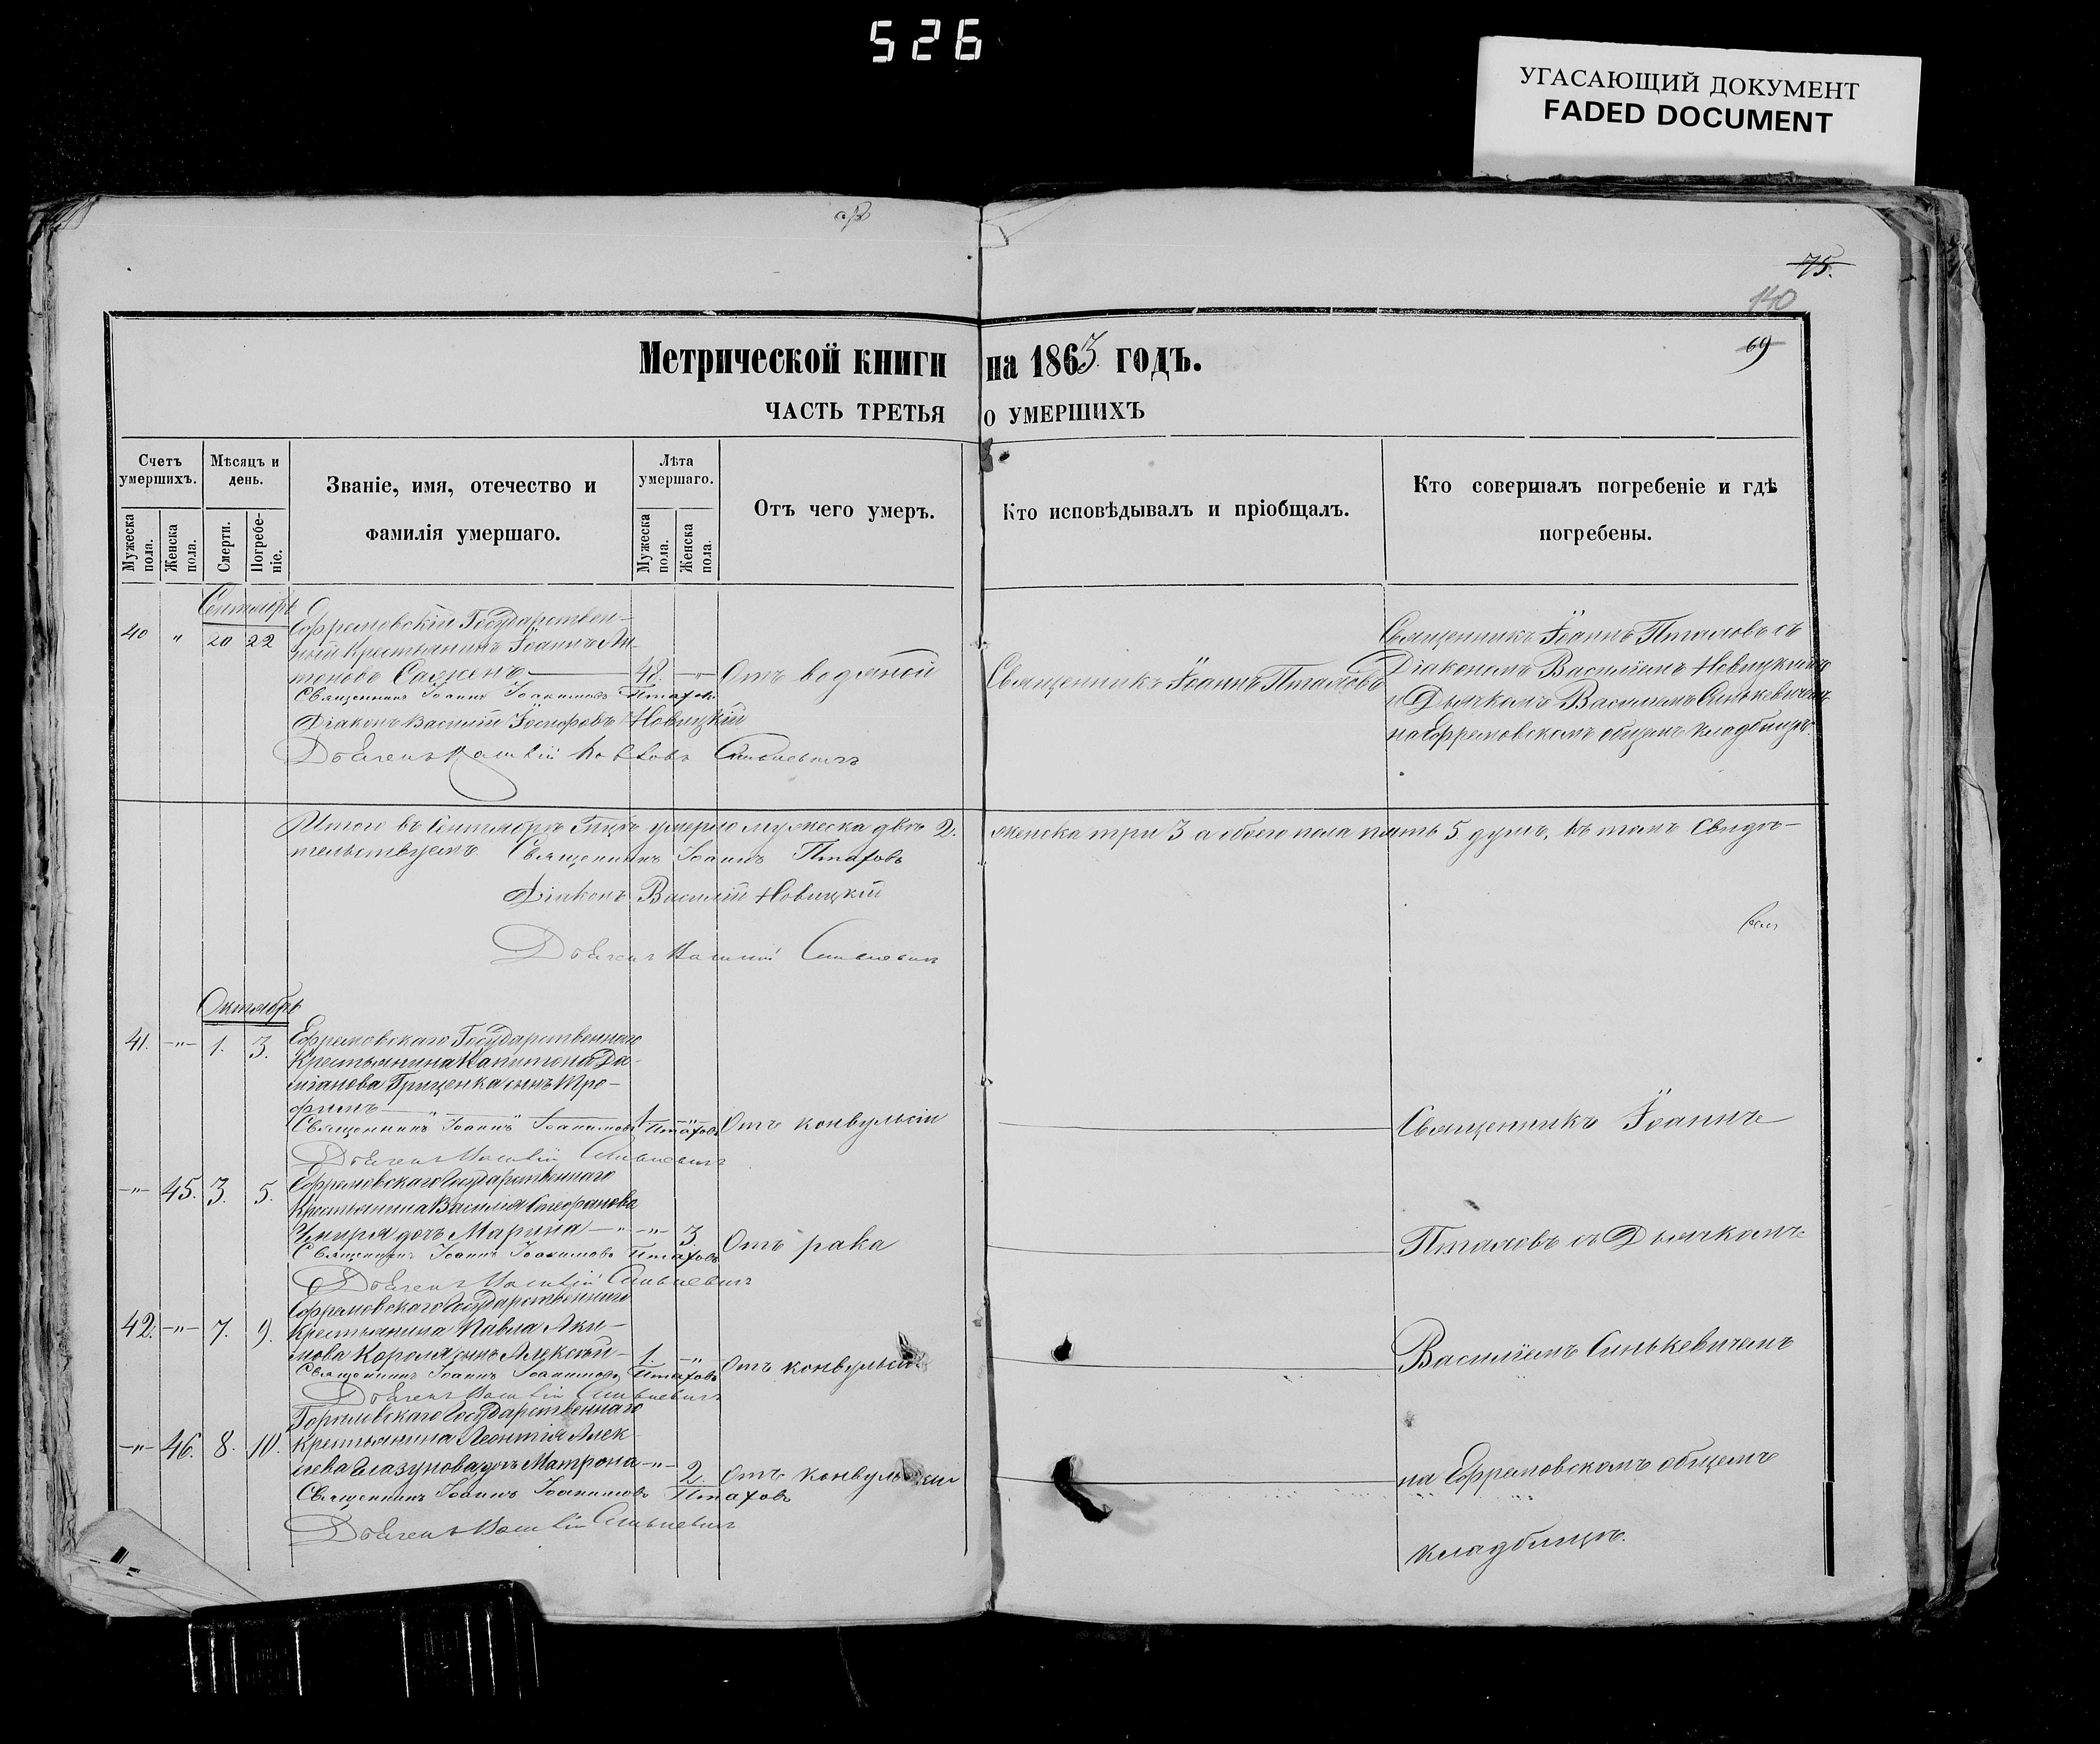 526
УГАСАЮЩИЙ ДОКУМЕНТ
FADED DOCUMENT
75.
140
69
Метрической книги на 1863. годъ.
ЧАСТЬ ТРЕТЬЯ О УМЕРШИХЪ
Счетъ умершихъ.
Мужеска пола.
Женска пола.
Мѣсяцъ и день.
Смерти.
Погребе-ніе.
Званіе, имя, отечество и
фамилія умершаго.
Лѣта умершаго.
Мужеска пола.
Женска пола.
Отъ чего умеръ.
Кто исповѣдывалъ и пріобщалъ.
Кто совершалъ погребеніе и гдѣ
погребены.
Сентябрь
40 " 20 22
Ефремовскій Государствен-
ный Крестьянинъ Іоаннъ Ан-
тоновъ Саженъ 48. " Отъ водяной
Священникъ Іоаннъ Іоакимовъ Птаховъ
Діаконъ Василій Іосифовъ Новицкій
Дьячекъ Василій Синькевичъ
Священникъ Іоаннъ Птаховъ
Священникъ Іоаннъ Птаховъ съ
Діакономъ Василіемъ Новицкимъ
и Дьячкомъ Василіемъ Синькевичемъ
на Ефремовскомъ общемъ кладбищѣ.
Итого въ Сентябрѣ Мцѣ умерло мужеска двѣ 2. женска три 3 а обоего пола пять 5 душъ, въ томъ Свидѣ-
тельствуемъ. Священникъ Іоаннъ Птаховъ
Діаконъ Василій Новицкій
Дьячекъ Василій Синькевичъ
Октябрь
41. -"- 1. 3.
Ефремовскаго Государственнаго
Крестьянина Капитона Да-
міанова Гриценка сынъ Тро-
фимъ 1 " Отъ конвульсіи
Священникъ Іоаннъ Іоакимовъ Птаховъ
Дьячекъ Василій Синькевичъ
-"- 45. 3. 5.
Ефремовскаго Государственнаго
Крестьянина Василія Стефанова
Чмиря дочь Марина -"- 3. Отъ рака
Священникъ Іоаннъ Іоакимовъ Птаховъ
Дьячекъ Василій Синькевичъ
42. -"- 7. 9.
Ефремовскаго Государственнаго
Крестьянина Павла Аки-
мова Короля сынъ Алексѣй 1. -"- Отъ конвульсіи
Священникъ Іоаннъ Іоакимовъ Птаховъ
Дьячекъ Василій Синькевичъ
-"- 46. 8. 10.
Государственнаго
Крестьянина Леонтія Алек
сѣева Глазунова дочь Матрона -"- 2. Отъ конвульсіи
Священникъ Іоаннъ Іоакимовъ Птаховъ
Дьячекъ Василій Синькевичъ
Священникъ Іоаннъ
Птаховъ съ Дьячкомъ
Василіемъ Синькевичемъ
на Ефремовскомъ общемъ
кладбищѣ.